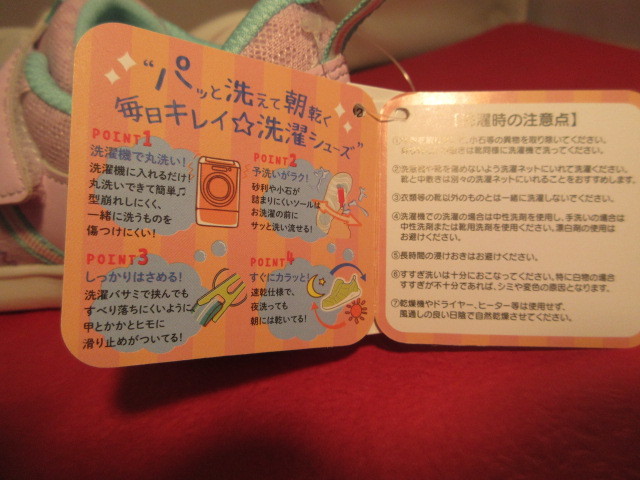 "パッと洗えて朝乾く
毎日キレイ☆洗濯シューズ"
POINT1
洗濯機で丸洗い!
洗濯機に入れるだけ!
丸洗いできて簡単♫
型崩れしにくく、
一緒に洗うものを
傷つけにくい!
POINT2
予洗いがラク!
砂利や小石が
詰まりにくいソールは
お洗濯の前に
サッと洗い流せる!
POINT3
しっかりはさめる!
洗濯バサミで挟んでも
すべり落ちにくいように
甲とかかとヒモに
滑り止めがついてる!
POINT4
すぐにカラッと!
速乾仕様で、
夜洗っても
朝には乾いてる!
洗濯時の注意点】
小石等の異物を取り除いてください。
は靴同様に洗濯機で洗ってください。
②洗濯機や靴を傷めないよう洗濯ネットにいれて洗濯ください。
靴と中敷きは別々の洗濯ネットにいれることをおすすめします。
③衣類等の靴以外のものとは一緒に洗濯しないでください。
④洗濯機での洗濯の場合は中性洗剤を使用し、手洗いの場合は
中性洗剤または靴用洗剤を使用ください。漂白剤の使用は
お避けください。
⑤長時間の浸けおきはお避けください。
⑥すすぎ洗いは十分におこなってください。特に白物の場合
すすぎが不十分であれば、シミや変色の原因となります。
⑦乾燥機やドライヤー、ヒーター等は使用せず、
風通しの良い日陰で自然乾燥させてください。